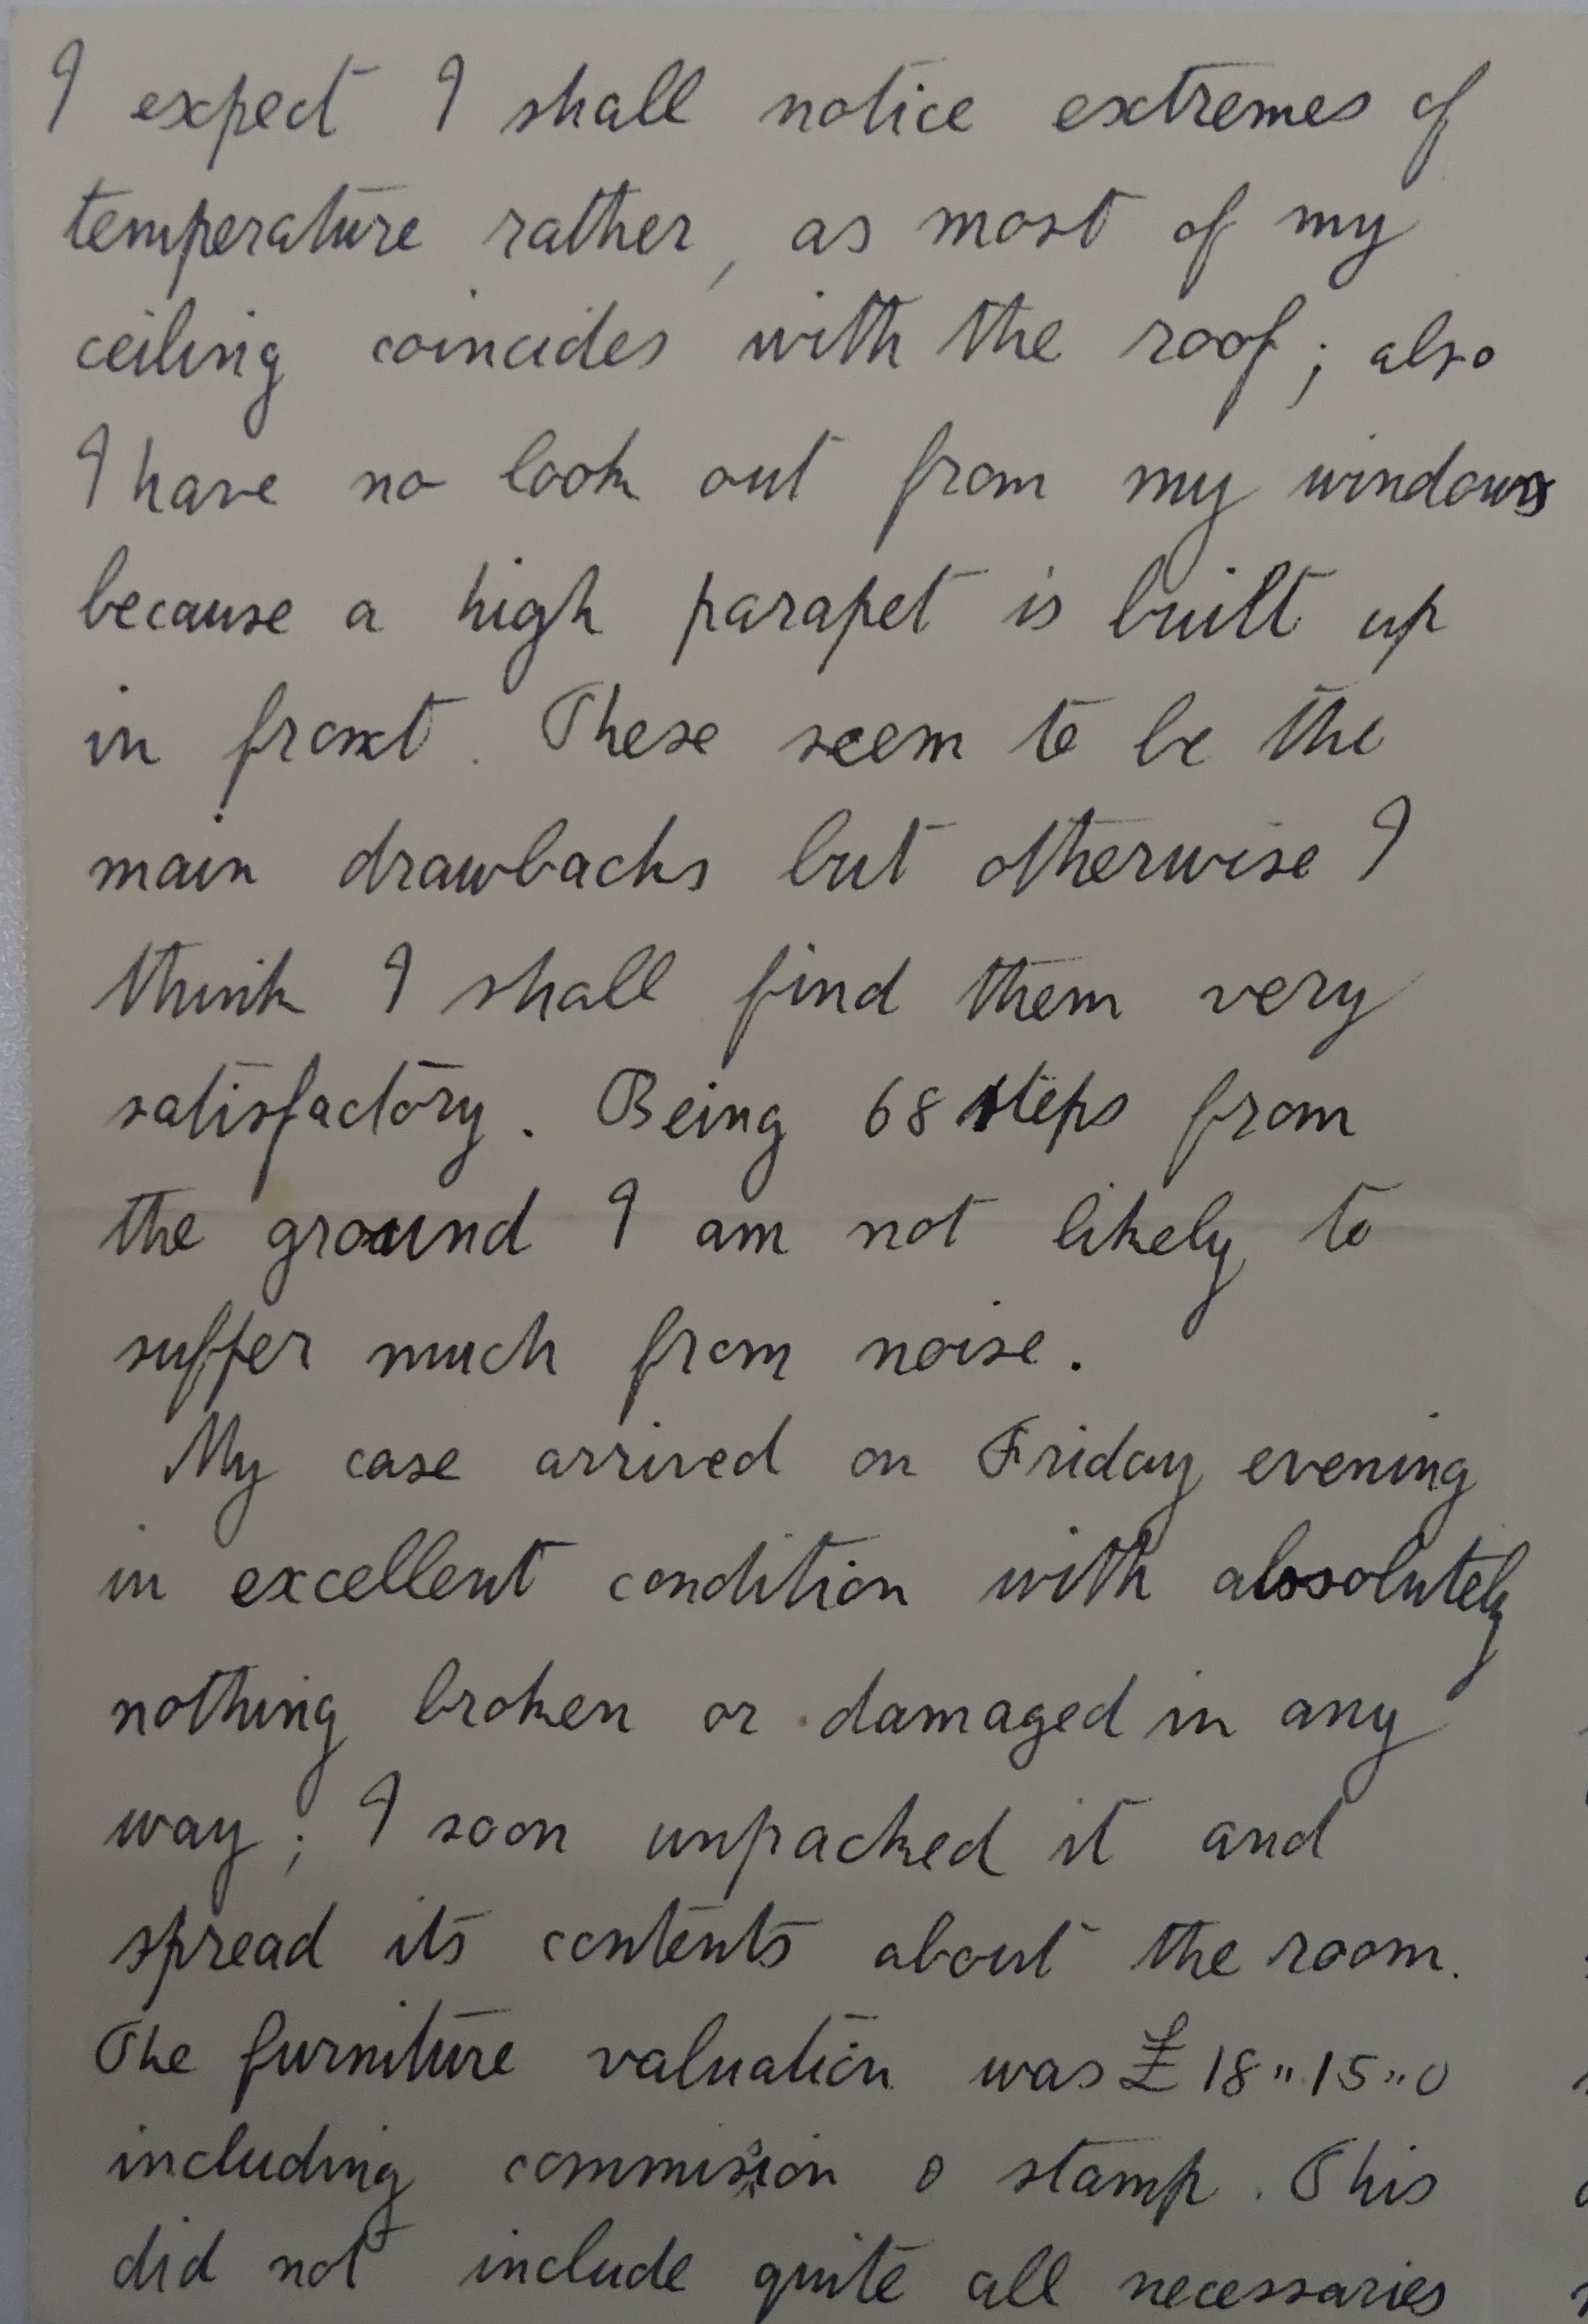 I expect I shall notice extremes of
temperature rather, as most of my
ceiling coincides with the roof; also
I have no look out from my windows
because a high parapet is built up
in front. These seem to be the
main drawbacks but otherwise I
think I shall find them very
satisfactory. Being 68 steps from
the ground I am not likely to
suffer much from noise.
My case arrived on Friday evening
in excellent condition with absolutely
nothing broken or damaged in any
way; I soon unpacked it and
spread its contents about the room.
The furniture valuation was £18"15"0
including commission & stamp. This
did not include quite all necessaries